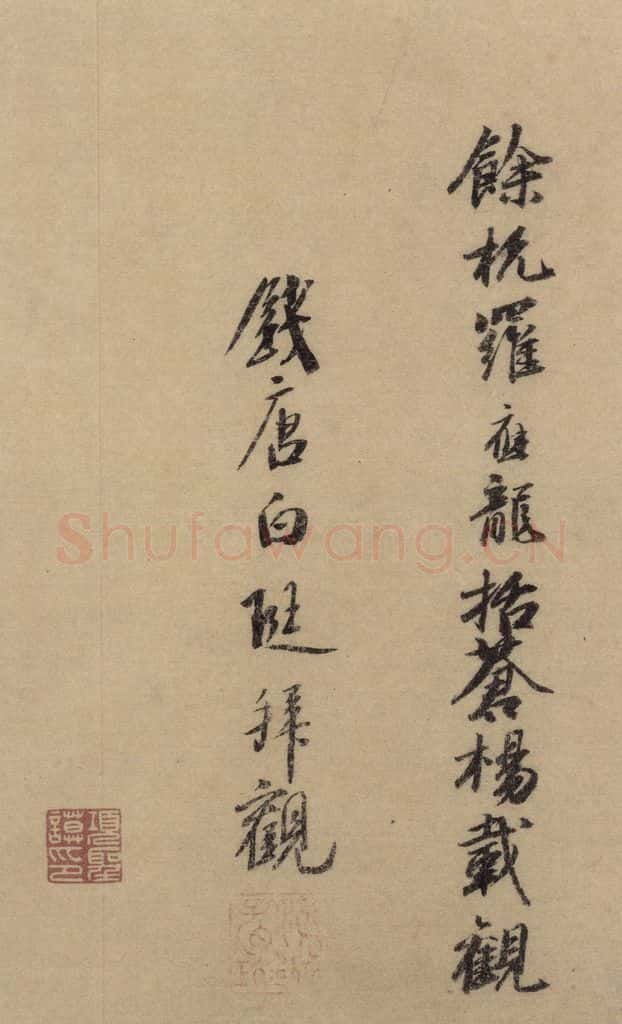 餘杭羅應龍括蒼楊載觀
錢唐白珽拜觀
項聖謨印
Shufawang.CN